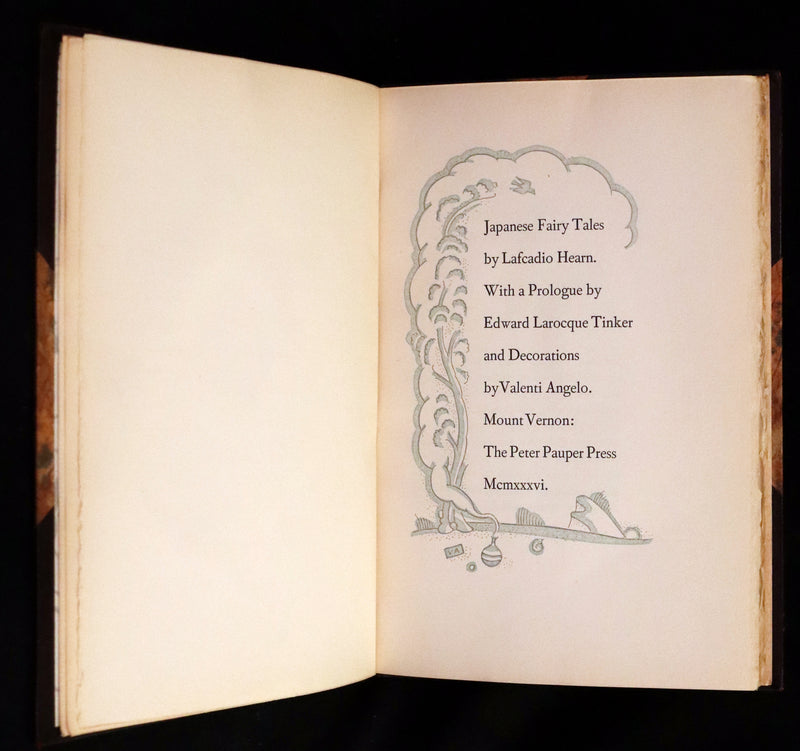 Japanese Fairy Tales
by Lafcadio Hearn.
With a Prologue by
Edward Larocque Tinker
and Decorations
by Valenti Angelo.
Mount Vernon:
The Peter Pauper Press
Mcmxxxvi.
VA